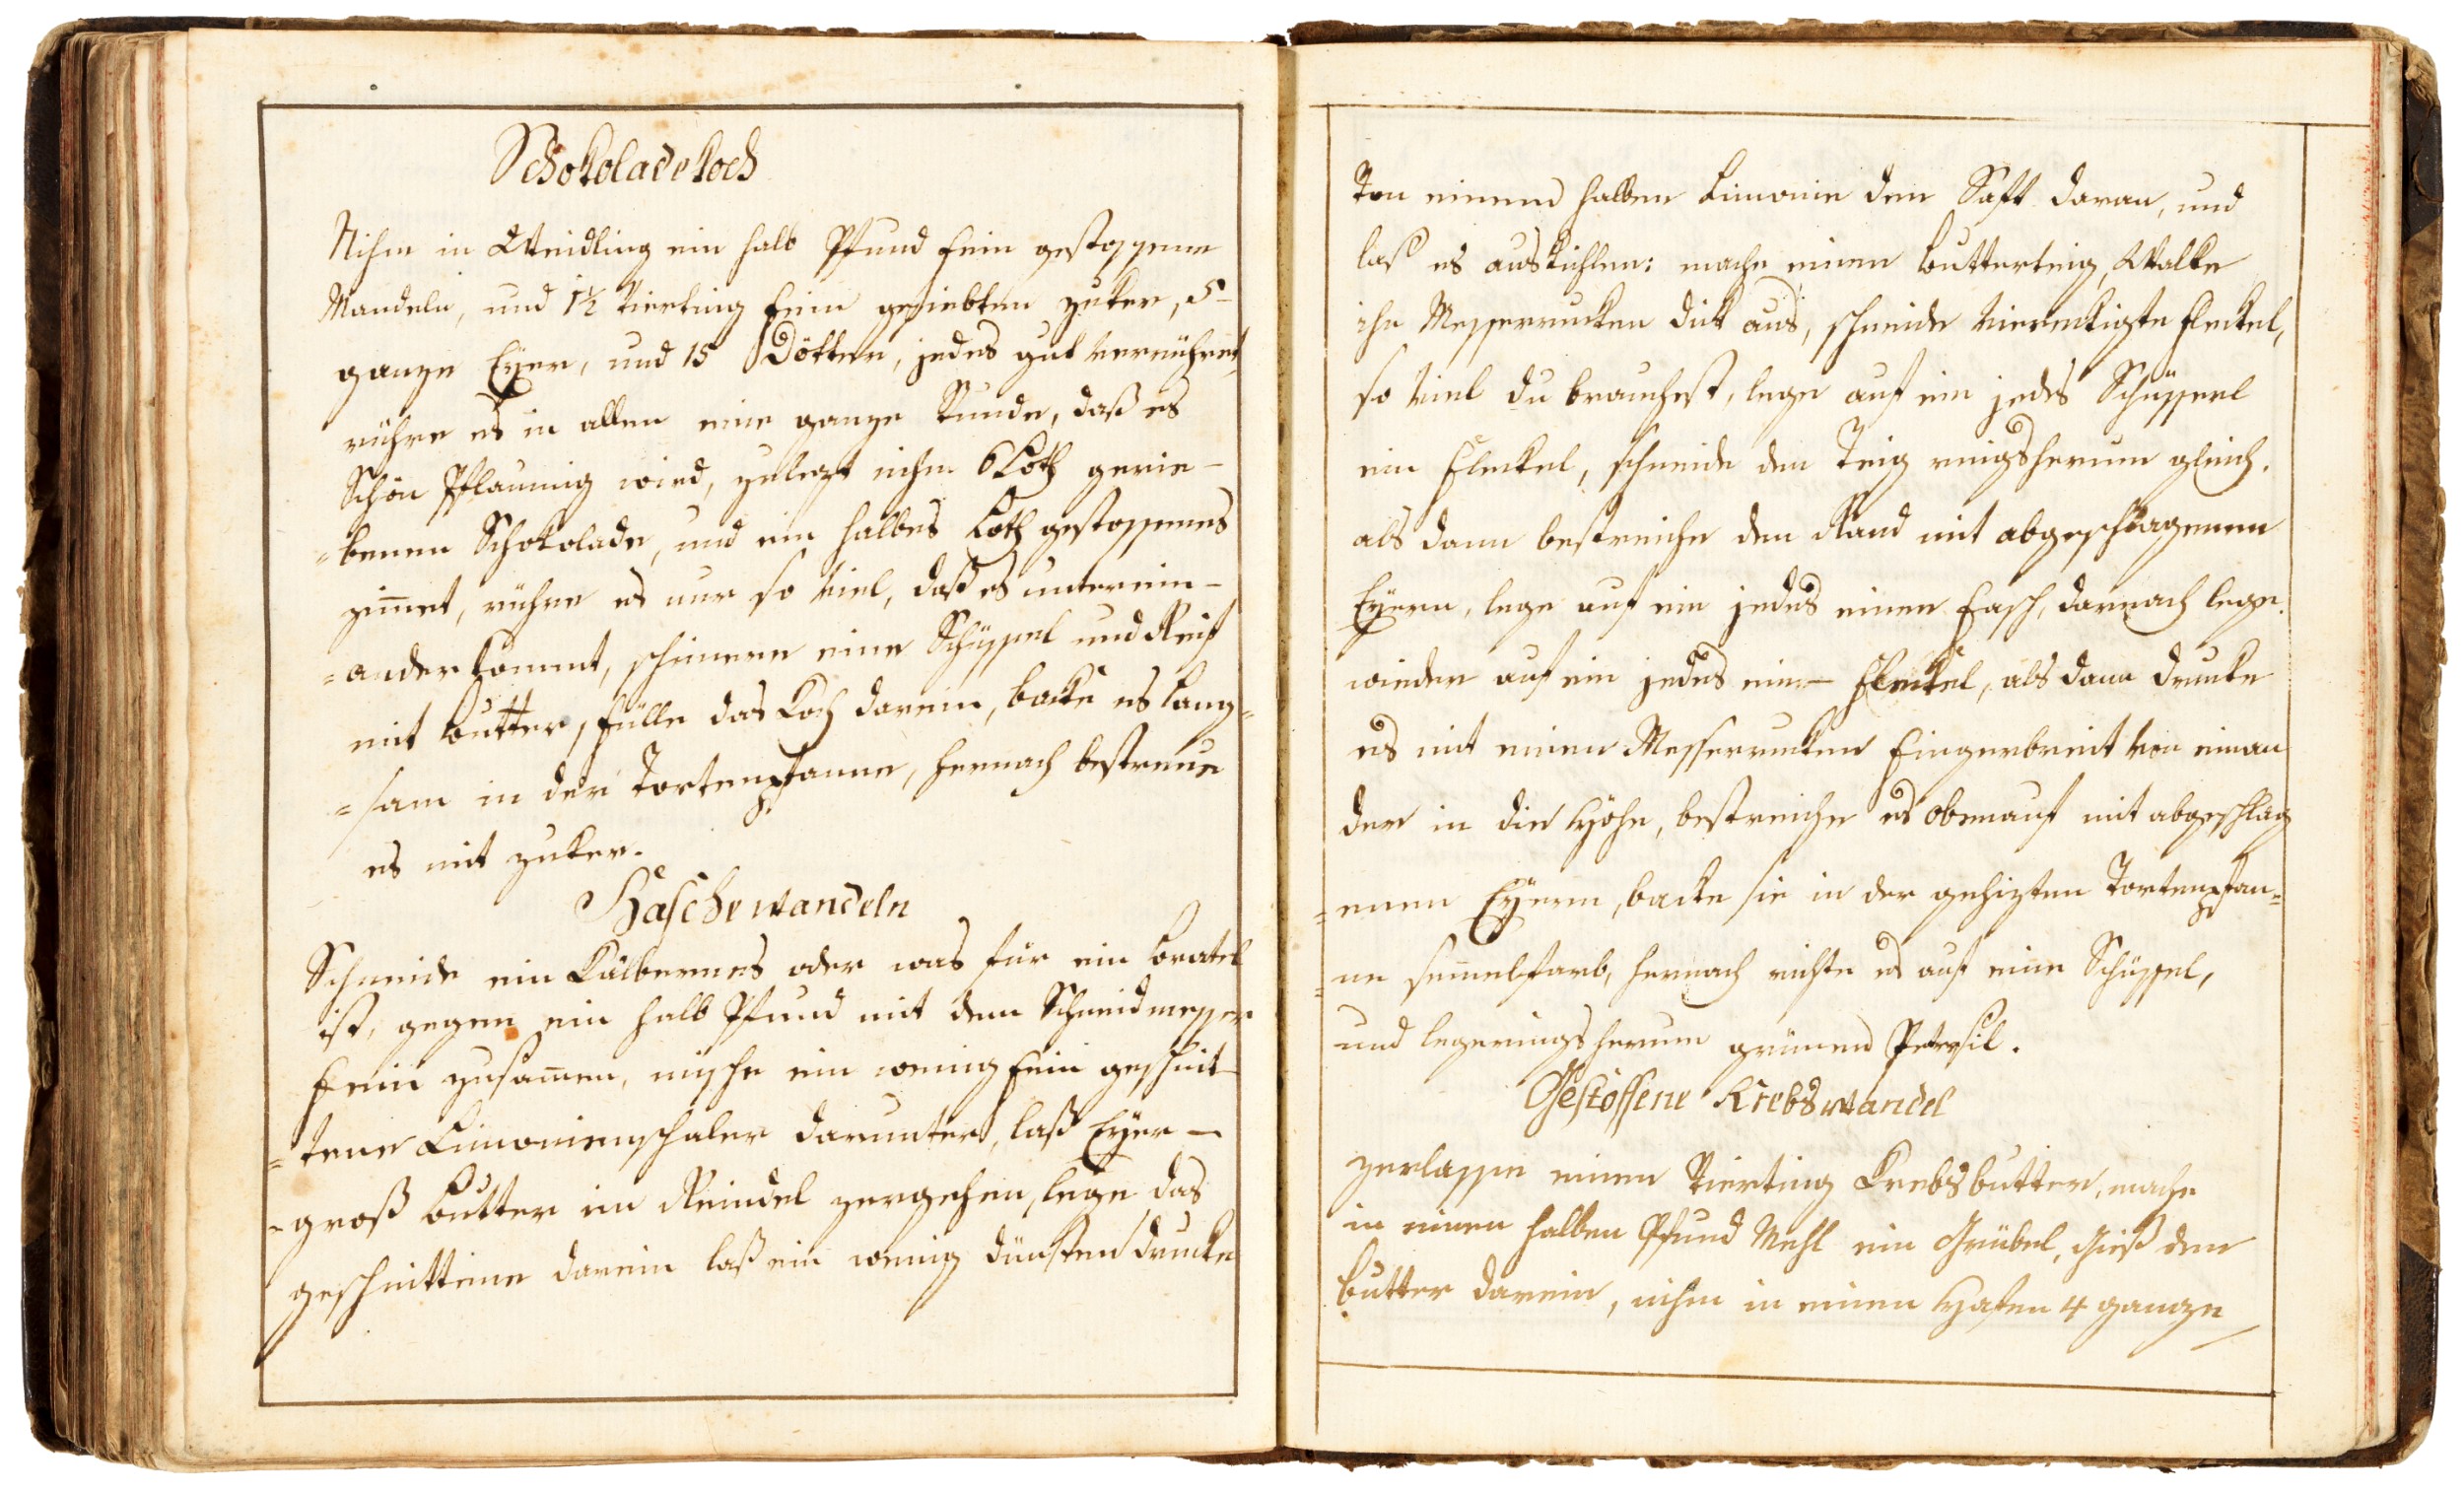 Schokoladekoch
Nihm in Weidling ein halb Pfund fein gestossene
Mandeln, und 1½ Vierting fein gesiebten zuker, 5
ganze Eÿer, und 15 Dötter, jedes gut verrühret,
rühre es in allen eine ganze Stunde, daß es
Schön Pflaumig wird, zulezt nihm 6 Loth gerie-
=benen Schokolade, und ein halbes Loth gestossenes
zim̄et, rühre es nur so viel, daß es unterein-
=ander kommt, schmiere eine Schüssel und Reif
mit butter, fülle das Koch darein, backe es lang=
=sam in der Tortenpfanne, hernach bestreue
es mit zuker.
Haschewandeln
Schneide ein Kälbernes oder was für ein bratel
ist, gegen ein halb Pfund mit dem Schneidmesser
fein zusam̄en, mische ein wenig fein geschnit-
=tene Limonienschaler darunter, laß Eÿer-
=groß butter im Reindel zergehen, lege das
geschnittene darein laß ein wenig dünsten drucke
Von einem halben Limonie den Saft daran, und
laß es auskichlen: mache einen butterteig, Walke
ihn Messerrucken dick aus, schneide Viereckigte fleckel,
so Viel du brauchest, lege auf ein jedes Schüsserl
ein fleckel, schneide den Teig ringsherum gleich.
als dann bestreiche den Rand mit abgeschlagenen
Eÿern, lege auf ein jedes einen Fasch, darnach lege
wieder auf ein jedes ein- fleckel, als dann drucke
es mit einen Messerrucken Fingerbreit von einan
der in die Höhe, bestreiche es obenauf mit abgeschlag
=enen Eÿern, backe sie in der gehizten Tortenpfan=
=ne sem̄elfarb, hernach richte es auf eine Schüssel,
und lege ringsherum grünen Petersil.
Gestossene Krebswandel
zerlasse einen Vierting Krebsbutter, mache
in einen halben Pfund Mehl ein Grübel, Gieß den
butter darein, nihm in einen Hafen 4 ganze